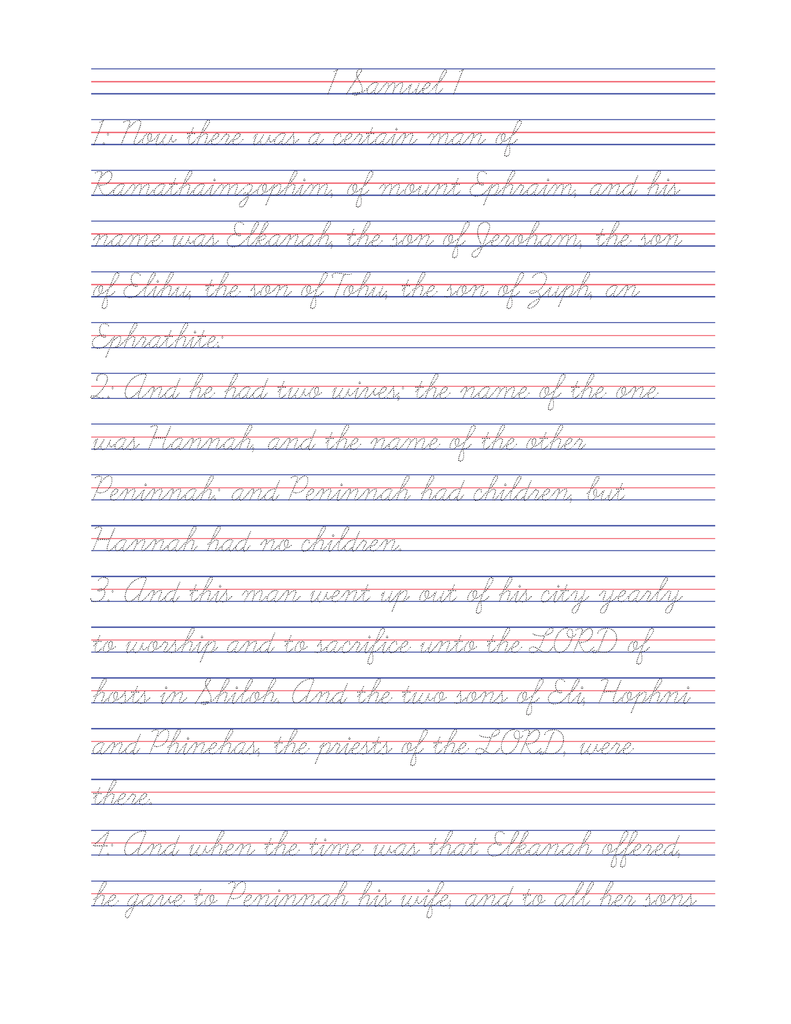 1 Samuel 1
1: Now there was a certain man of
Ramathaimzophim, of mount Ephraim, and his
name was Elkanah, the son of Jeroham, the son
of Elihu, the son of Tohu, the son of Zuph, an
Ephrathite:
2: And he had two wives; the name of the one
was Hannah, and the name of the other
Peninnah: and Peninnah had children, but
Hannah had no children.
3: And this man went up out of his city yearly
to worship and to sacrifice unto the LORD of
hosts in Shiloh. And the two sons of Eli, Hophni
and Phinehas, the priests of the LORD, were
there.
4: And when the time was that Elkanah offered,
he gave to Peninnah his wife, and to all her sons